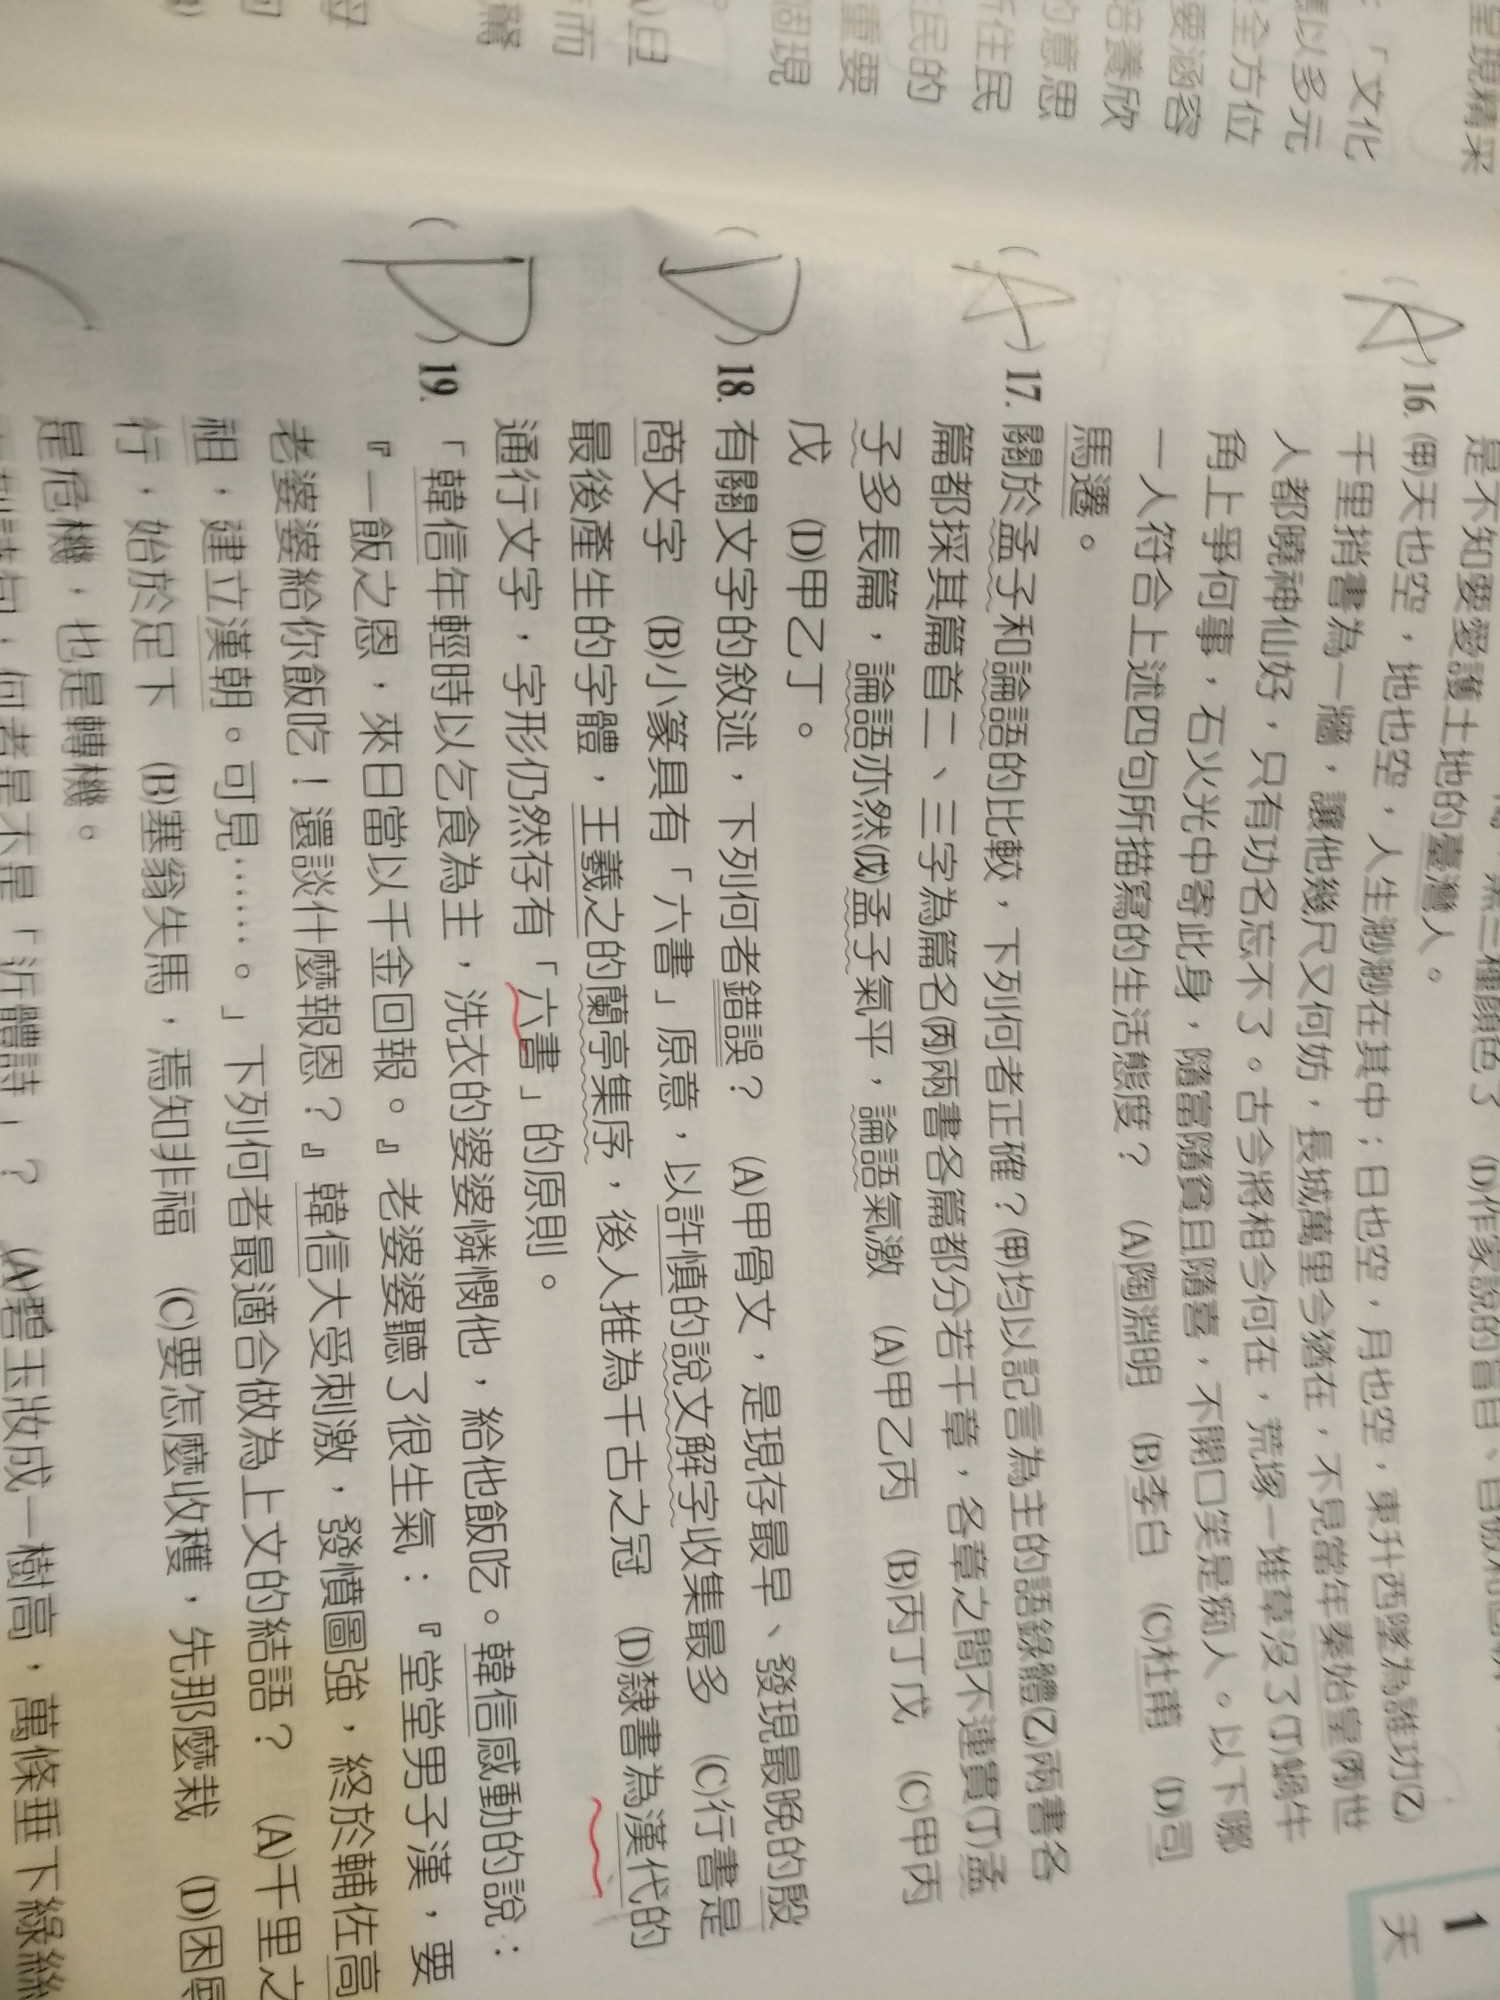 呈現精采
：「文化
以多元
全方位
要涵容
培養欣
的意思
所住民
民的
重要
個現
是不知要愛護土地的臺灣人。
(A) 16. (甲)天也空，地也空，人生渺渺在其中；日也空，月也空，東升西墜為誰功(乙)
千里捎書為一牆，讓他幾尺又何妨，長城萬里今猶在，不見當年秦始皇(丙)世
人都曉神仙好，只有功名忘不了。古今將相今何在，荒塚一堆草沒了(丁)蝸牛
角上爭何事，石火光中寄此身，隨富隨貧且隨喜，不開口笑是痴人。以下哪
一人符合上述四句所描寫的生活態度？　(A)陶淵明　(B)李白　(C)杜甫　(D)司
馬遷。
(A) 17. 關於孟子和論語的比較，下列何者正確？(甲)均以記言為主的語錄體(乙)兩書各
篇都採其篇首二、三字為篇名(丙)兩書各篇都分若干章，各章之間不連貫(丁)孟
子多長篇，論語亦然(戊)孟子氣平，論語氣激　(A)甲乙丙　(B)丙丁戊　(C)甲丙
戊　(D)甲乙丁。
(D) 18. 有關文字的敘述，下列何者錯誤？　(A)甲骨文，是現存最早、發現最晚的殷
商文字　(B)小篆具有「六書」原意，以許慎的說文解字收集最多　(C)行書是
最後產生的字體，王羲之的蘭亭集序，後人推為千古之冠　(D)隸書為漢代的
通行文字，字形仍然存有「六書」的原則。
(D) 19. 「韓信年輕時以乞食為主，洗衣的婆婆憐憫他，給他飯吃。韓信感動的說：
『一飯之恩，來日當以千金回報。』老婆婆聽了很生氣：『堂堂男子漢，要
老婆婆給你飯吃！還談什麼報恩？』韓信大受刺激，發憤圖強，終於輔佐高
祖，建立漢朝。可見……。」下列何者最適合做為上文的結語？　(A)千里之
行，始於足下　(B)塞翁失馬，焉知非福　(C)要怎麼收穫，先那麼栽　(D)困
是危機，也是轉機。
何者是不是「近體詩」？　(A)碧玉妝成一樹高，萬條垂下綠絲
1
天